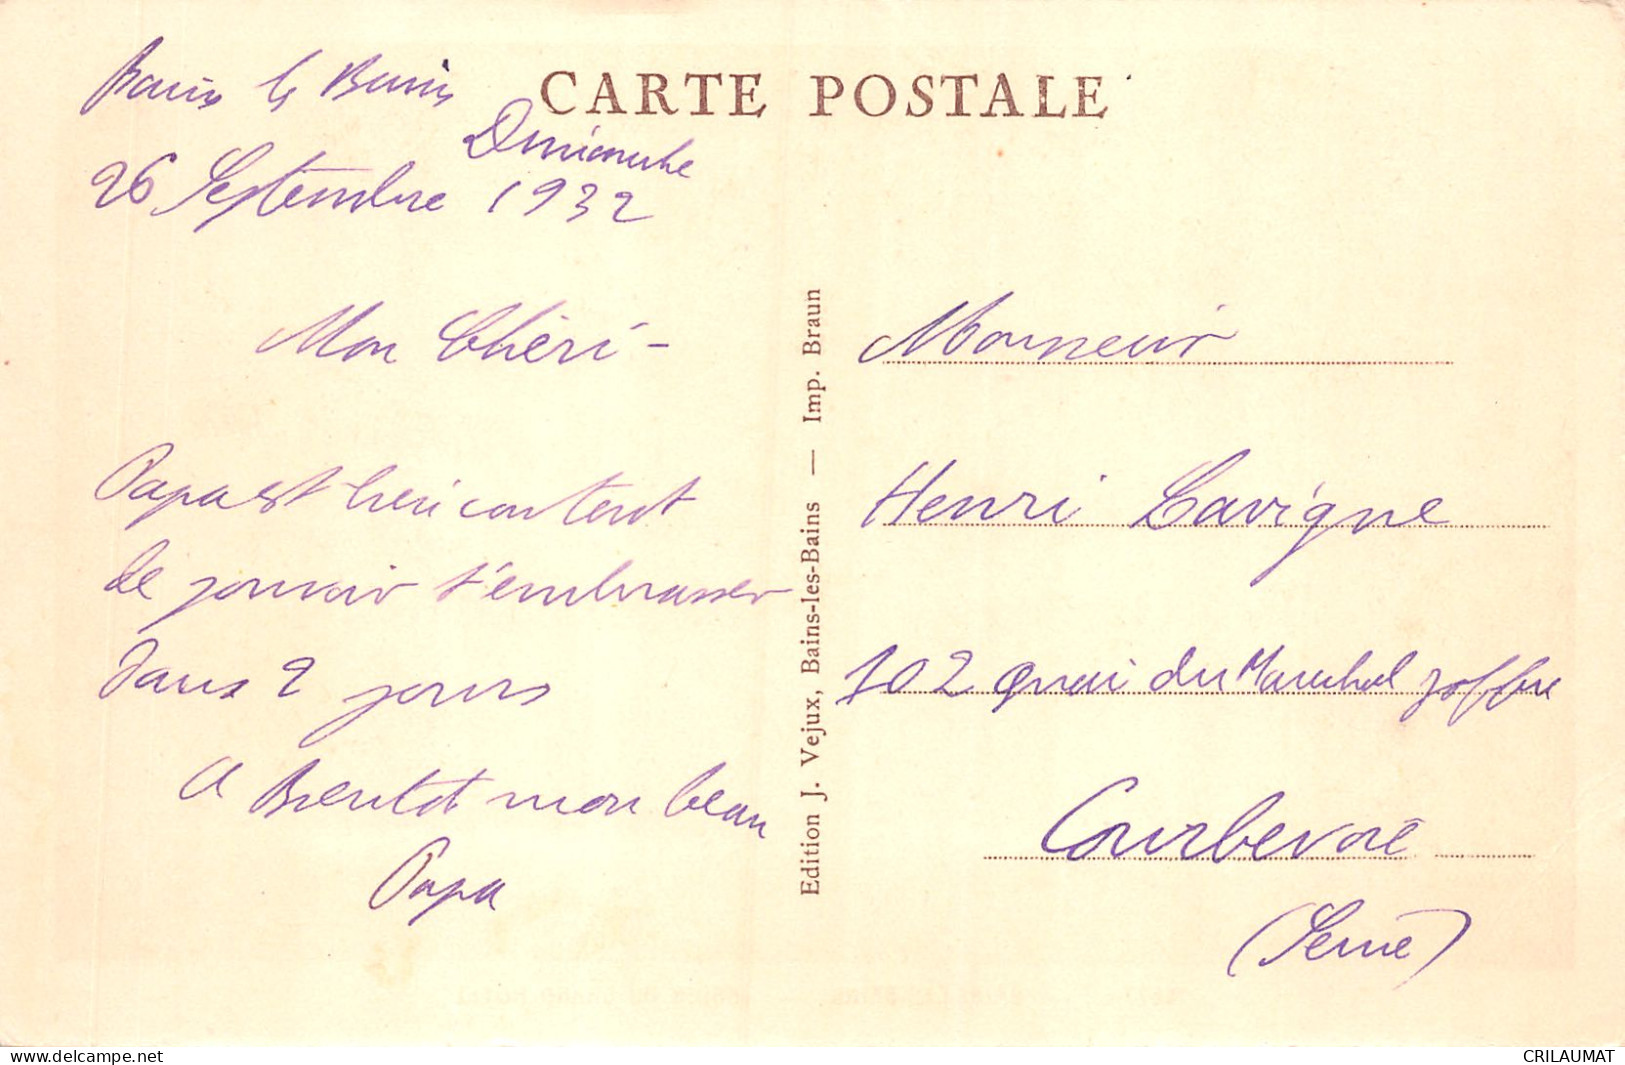 CARTE POSTALE
Bains les Bains
Dimanche
26 Septembre 1932
Mon Chéri -
Papa est bien content
de pouvoir t'embrasser
dans 2 jours
A Bientot mon beau
Papa
Edition J. Vejux, Bains-les-Bains — Imp. Braun
Monsieur
Henri Lavigne
102 Quai du Marechal Joffre
Courbevoie
(Seine)
www.delcampe.net
CRILAUMAT